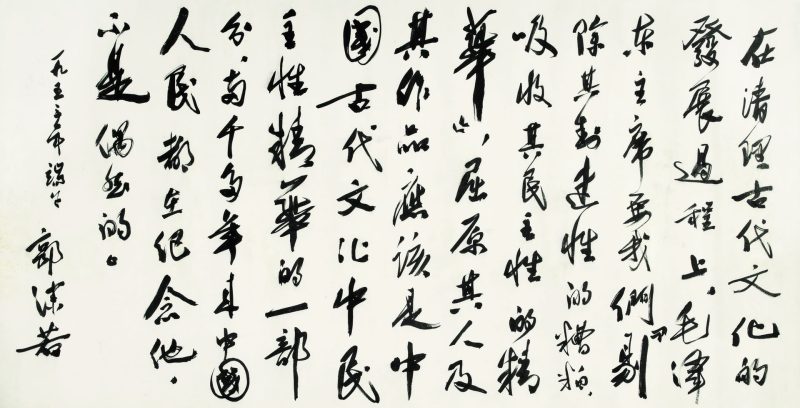 在清理古代文化的
發展過程上，毛澤
東主席要我們“剔
除其封建性的糟粕，
吸收其民主性的精
華”，屈原其人及
其作品應該是中
國古代文化中民
主性精華的一部
分，兩千多年來中國
人民都在紀念他，
不是偶然的。
一九五三年端午
郭沫若